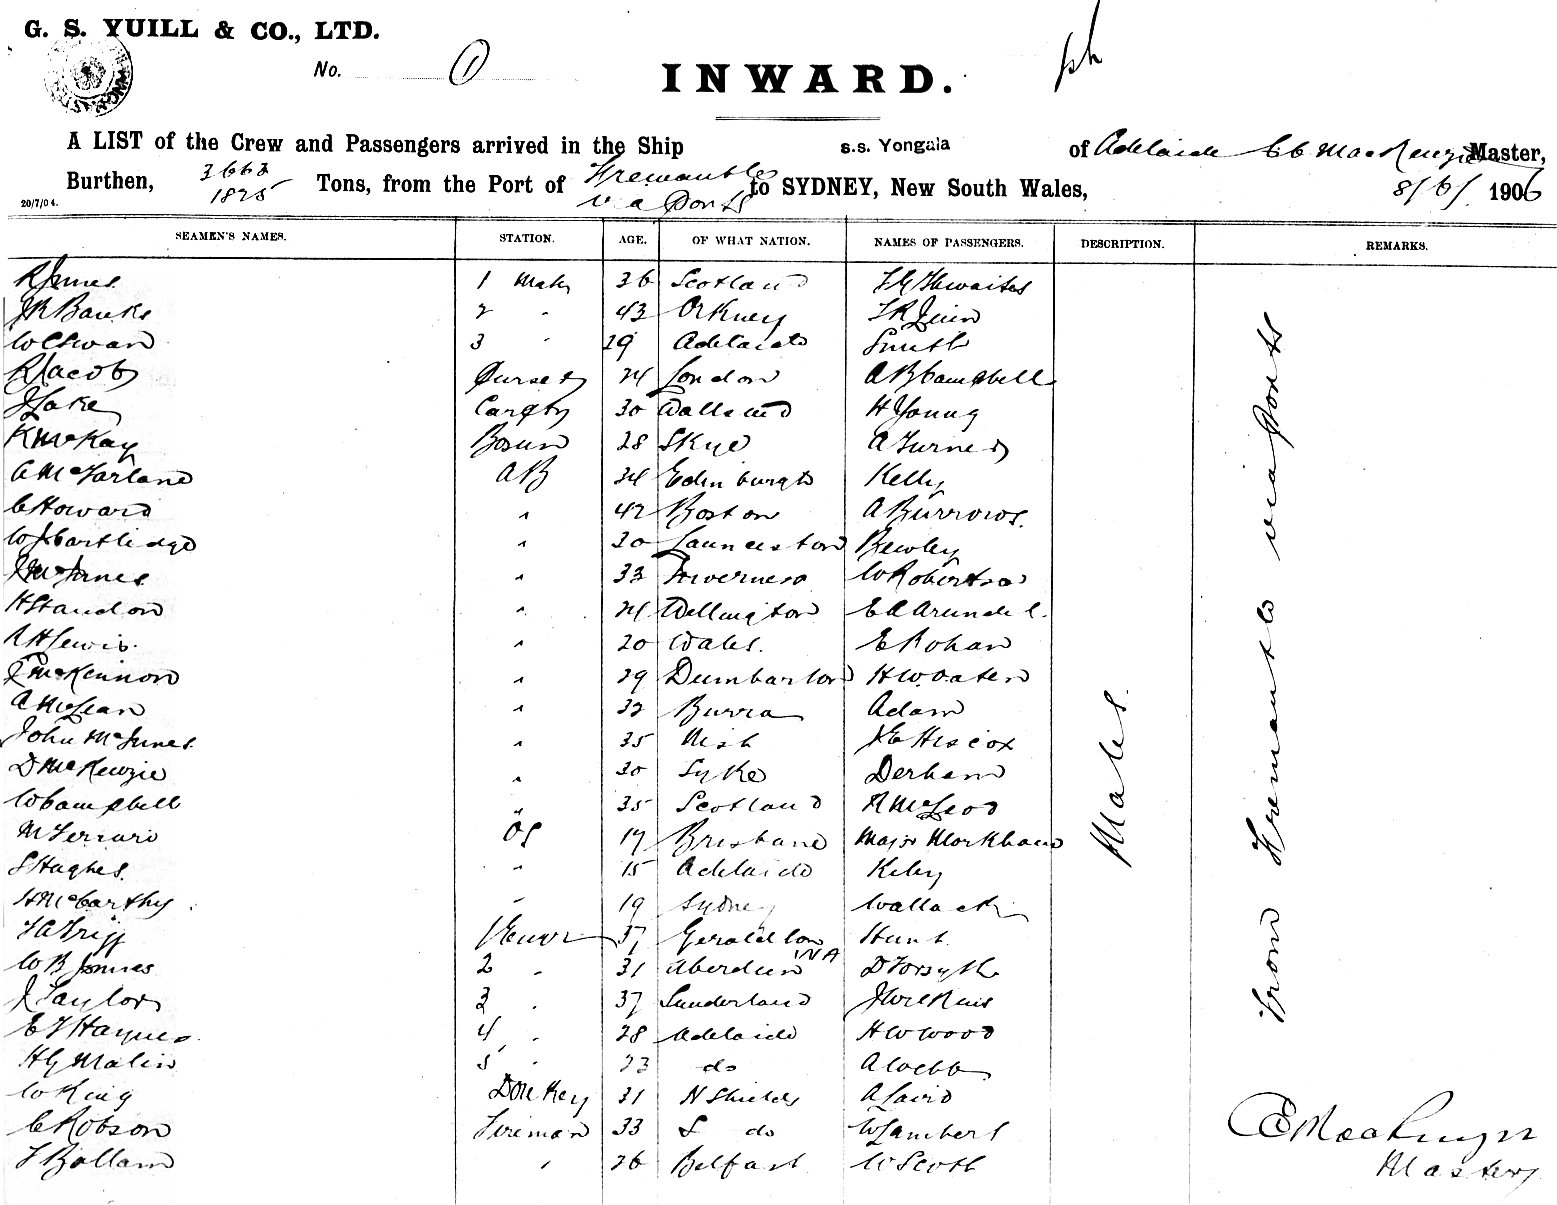 G. S. YUILL & CO., LTD.
No. 1
INWARD.
A LIST of the Crew and Passengers arrived in the Ship s.s. Yongala of Adelaide MacKenzie Master,
Burthen, 3663 1825 Tons, from the Port of Fremantle via Ports to SYDNEY, New South Wales, 8/6/ 1906
20/7/04.
SEAMEN'S NAMES. STATION. AGE. OF WHAT NATION. NAMES OF PASSENGERS. DESCRIPTION. REMARKS.
1 Mate 36 Scotland Thwaites
JR Banks 2 " 43 Orkney
3 " 29 Adelaide Smith
R Jacob Purser 24 London AB Campbell
J Lake 30 H Young
K McKay Bosun 28 Skye A Turner
A McFarlane AB 34 Edinburgh Kelly
C Howard " 42 Boston A Burrows.
WJ Cartledge " 30 Launceston Bewley
" 33 Inverness W Robertson
H Standon " 24 Wellington EA Arundel.
RH Lewis. " 20 Wales. E Rohan
McKinnon " 29 Dumbarton
A McLean " 32 Burra Adam
John McInnes. " 35 JE Hiscox
D McKenzie " 30 Syke Derham
W Campbell " 35 Scotland R McLeod
M Ferrari OS 17 Brisbane Major
S Hughes. " 15 Adelaide
H McCarthy " 19 Sydney Wallack
1 37 Geraldton WA Hunt
WB 2 " 31 Aberdeen D Forsyth
J Taylor 3 " 37 Sunderland J Wilkins
4 " 28 Adelaide HW Wood
HG Malin 5 " 23 do A Webb
W King Donkey 31 N Shields A Laird
C Robson Fireman 33 S do W Lambert
T Bollam " 26 Belfast W Scott
Males.
From Fremantle via Ports
Master